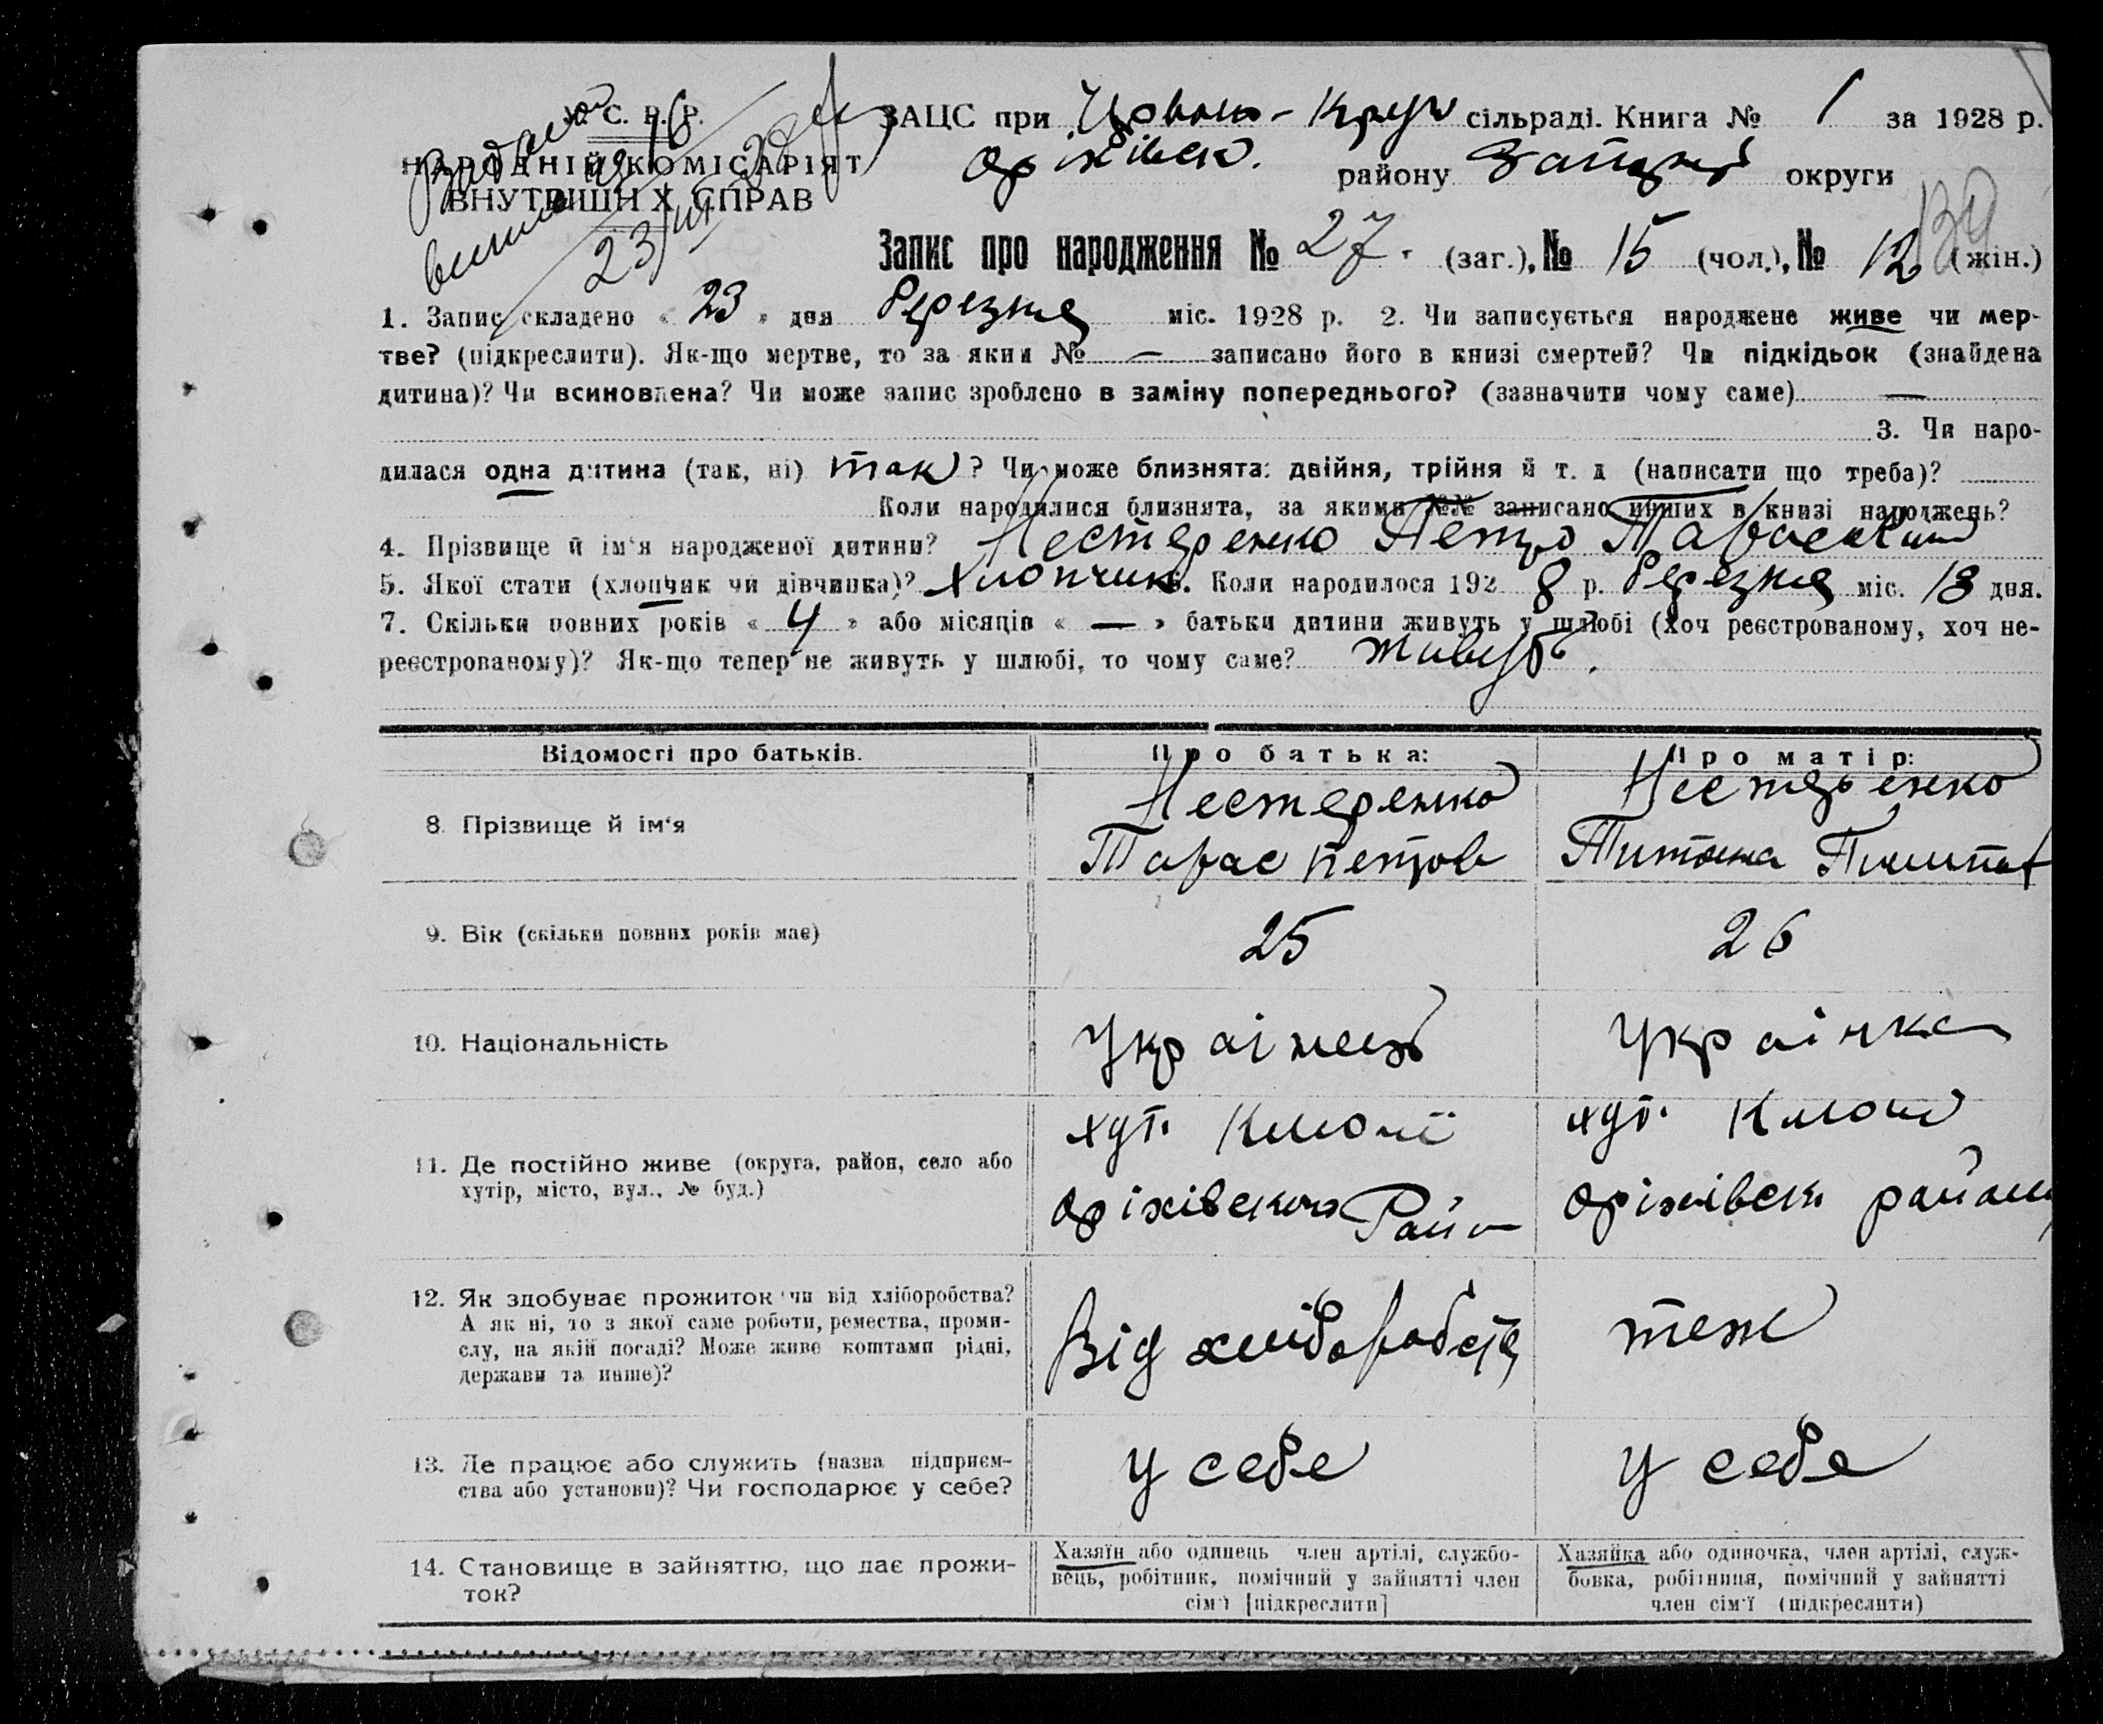 У. С. Р. Р.
НАРОДНІЙ КОМІСАРІЯТ
ВНУТРІШНІХ СПРАВ
23/III
ЗАЦС при сільраді. Книга № 1 за 1928 р.
Оріхівськ. району округи
Запис про народження № 27. (заг.), № 15 (чол.), № 12 (жін.)
1. Запис складено « 23 » дня березня міс. 1928 р. 2. Чи записується народжене живе чи мер-
тве? (підкреслити). Як-що мертве, то за яким № — записано його в книзі смертей? Чи підкідьок (знайдена
дитина)? Чи всиновлена? Чи може запис зроблено в заміну попереднього? (зазначити чому саме) —
3. Чи наро-
дилася одна дитина (так, ні) так? Чи може близнята: двійня, трійня й т. д (написати що треба)?
Коли народилися близнята, за якими №№ записано инших в книзі народжень?
4. Прізвище й ім'я народженої дитини? Нестеренко Петро Тарасович
5. Якої стати (хлопчик чи дівчинка)? хлопчик. Коли народилося 192 8 р. березня міс. 18 дня.
7. Скільки повних років « 4 » або місяців « — » батьки дитини живуть у шлюбі (хоч реєстрованому, хоч не-
реєстрованому)? Як-що тепер не живуть у шлюбі, то чому саме? живуть.
Відомості про батьків. Про батька: Про матір:
8. Прізвище й ім'я
Нестеренко
Тарас Петров
Нестеренко
9. Вік (скільки повних років має) 25 26
10. Національність Українець Українка
11. Де постійно живе (округа, район, село або
хутір, місто, вул., № буд.)
хут.
Оріхівського Район
хут.
Оріхівськ району
12. Як здобуває прожиток чи від хліборобства?
А як ні, то з якої саме роботи, ремества, проми-
слу, на якій посаді? Може живе коштами рідні,
держави та инше)?
Від хліборобств
теж
13. Де працює або служить (назва підприєм-
ства або установи)? Чи господарює у себе?
у себе
у себе
14. Становище в зайняттю, що дає прожи-
ток?
Хазяїн або одинець член артілі, службо-
вець, робітник, помічний у зайнятті член
сім'ї [підкреслити]
Хазяйка або одиночка, член артілі, служ-
бовка, робітниця, помічний у зайнятті
член сім'ї (підкреслити)